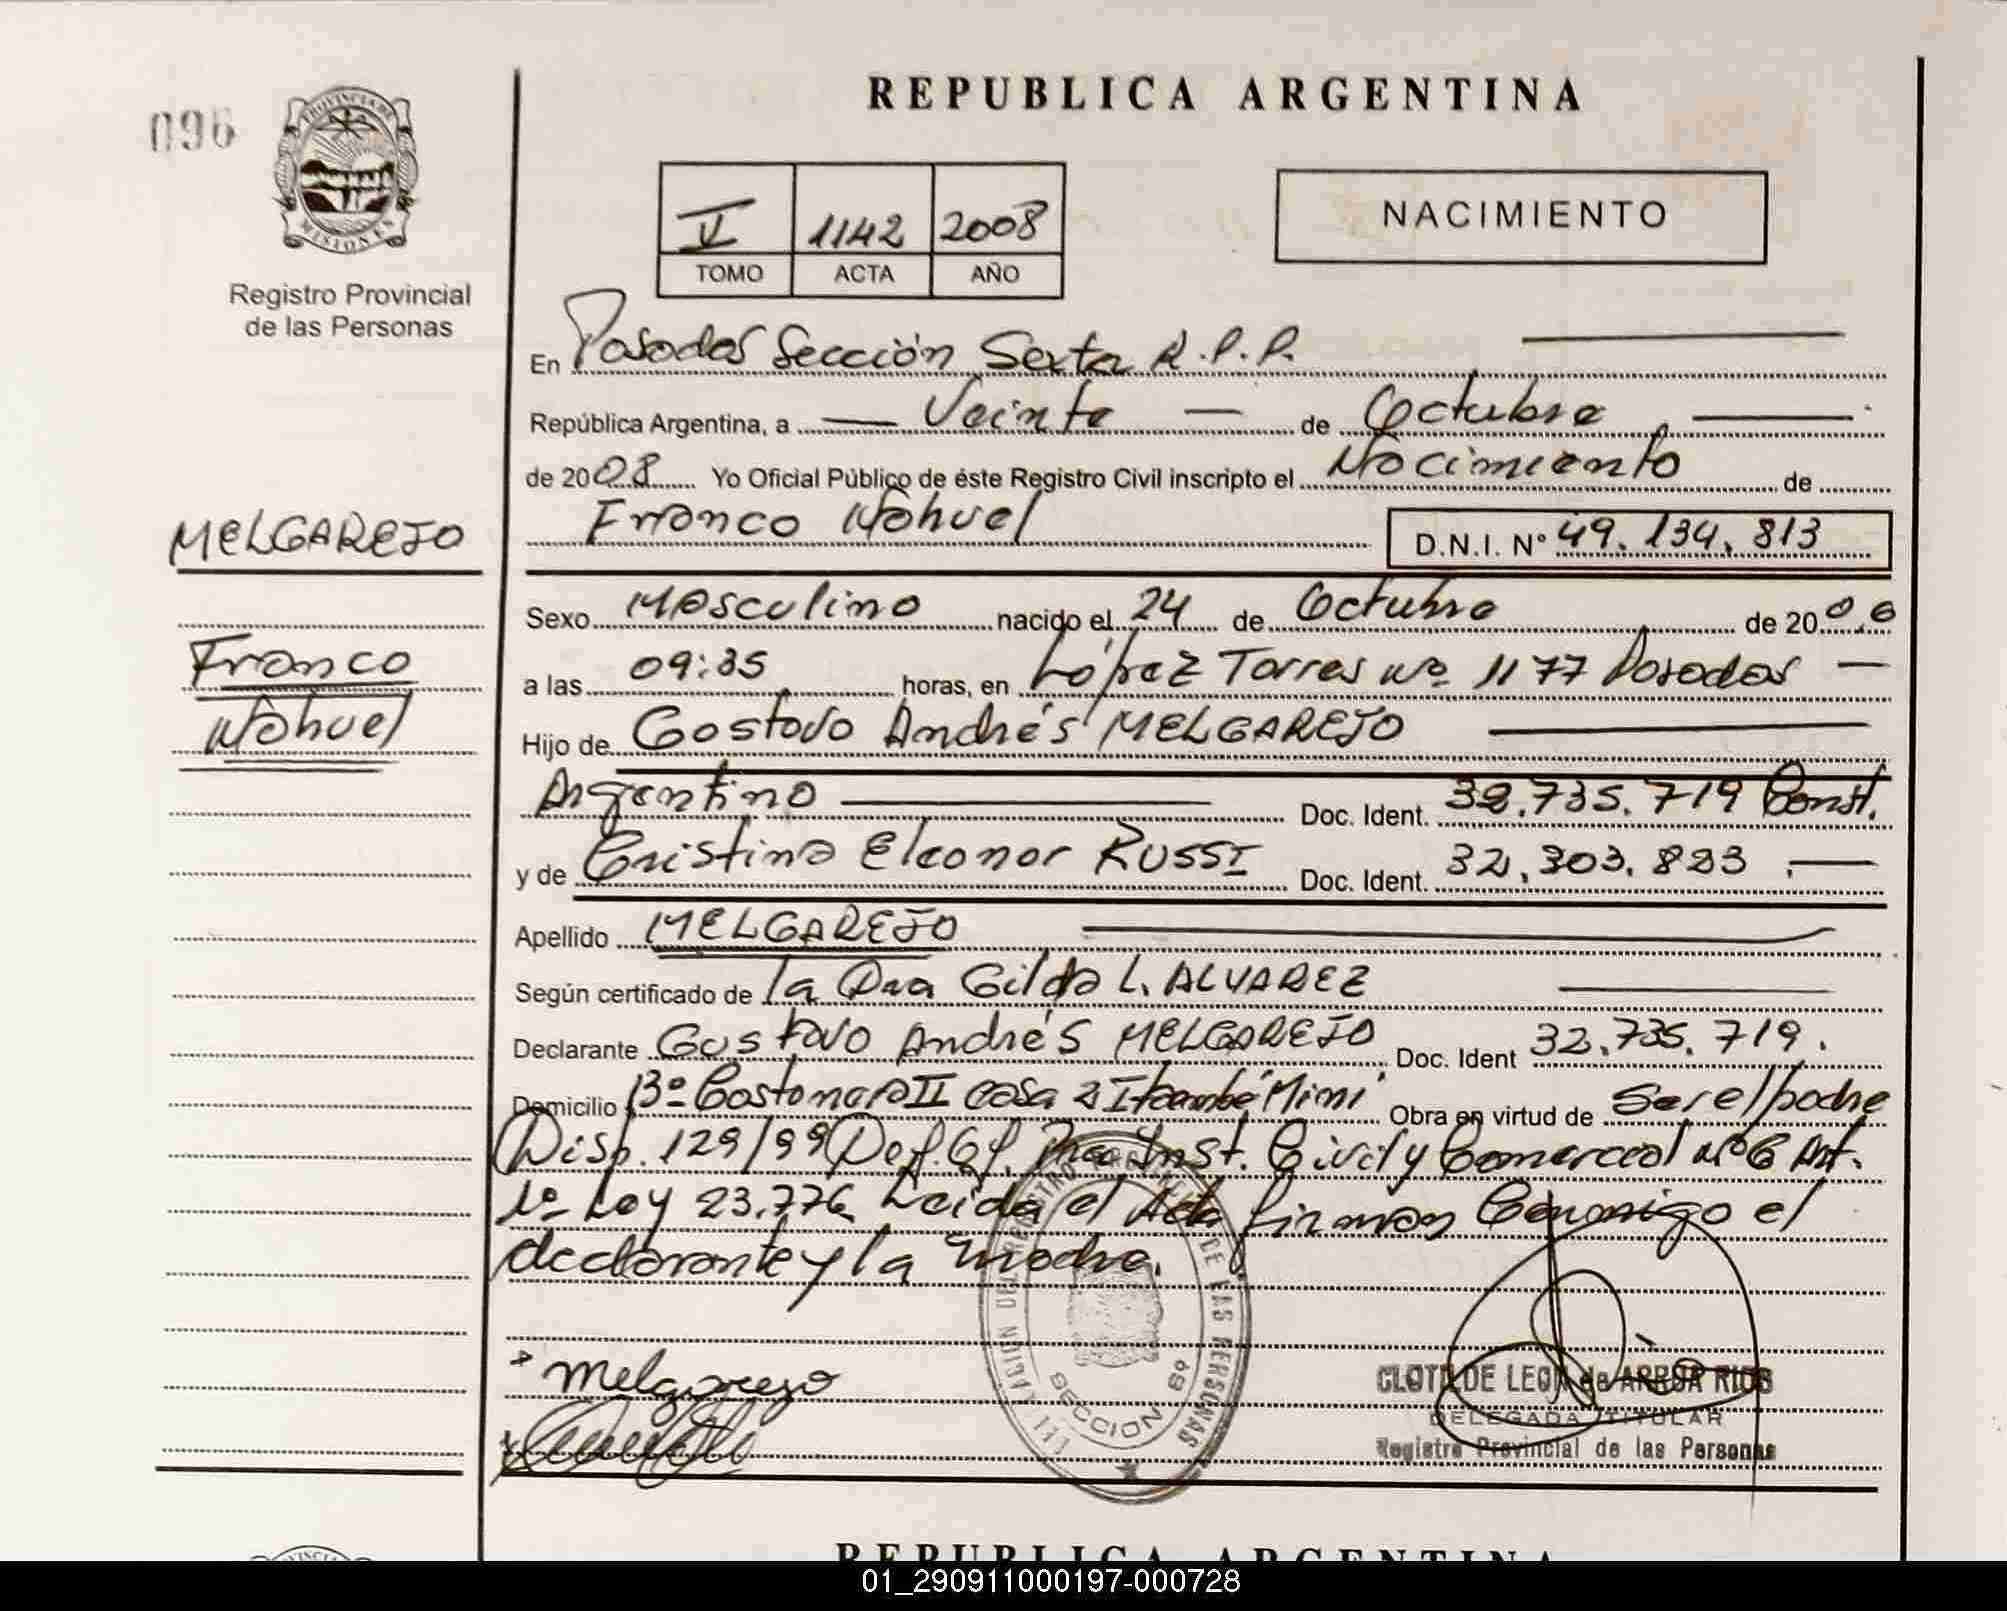 REPUBLICA ARGENTINA
096
PROVINCIA DE
MISIONES
Registro Provincial
de las Personas
V 1142 2008
TOMO ACTA AÑO
NACIMIENTO
En Posadas Sección Sexta R.P.P.
República Argentina, a Veinte de Octubre
de 2008 Yo Oficial Público de éste Registro Civil inscripto el Nacimiento de
Franco Nahuel D.N.I. Nº 49.134.813
MELGAREJO
Franco
Nahuel
Sexo Masculino nacido el 24 de Octubre de 200
a las 09:35 horas, en López Torres Nº 1177 Posadas
Hijo de Gustavo Andrés MELGAREJO
Argentino Doc. Ident. 32.735.719 Const.
y de Cristina Eleonor RUSSI Doc. Ident. 32.303.823
Apellido MELGAREJO
Según certificado de la Dra Gilda L. ALVAREZ
Declarante Gustavo Andrés MELGAREJO Doc. Ident 32.735.719.
Domicilio Bº Costanera II casa 2 Itaembé Miní Obra en virtud de Ser el padre
Disp. 129/99 Def. Of. Inst. Civil y Comercial Nº 6 Art.
1º Ley 23.776 Leida el Acta firman Conmigo el
declarante y la madre.
Melgarejo
SECCION 6ª
DE LAS PERSONAS
CLOTILDE LEON de ARRUA RIOS
DELEGADA TITULAR
Registro Provincial de las Personas
REPUBLICA ARGENTINA
01_290911000197-000728